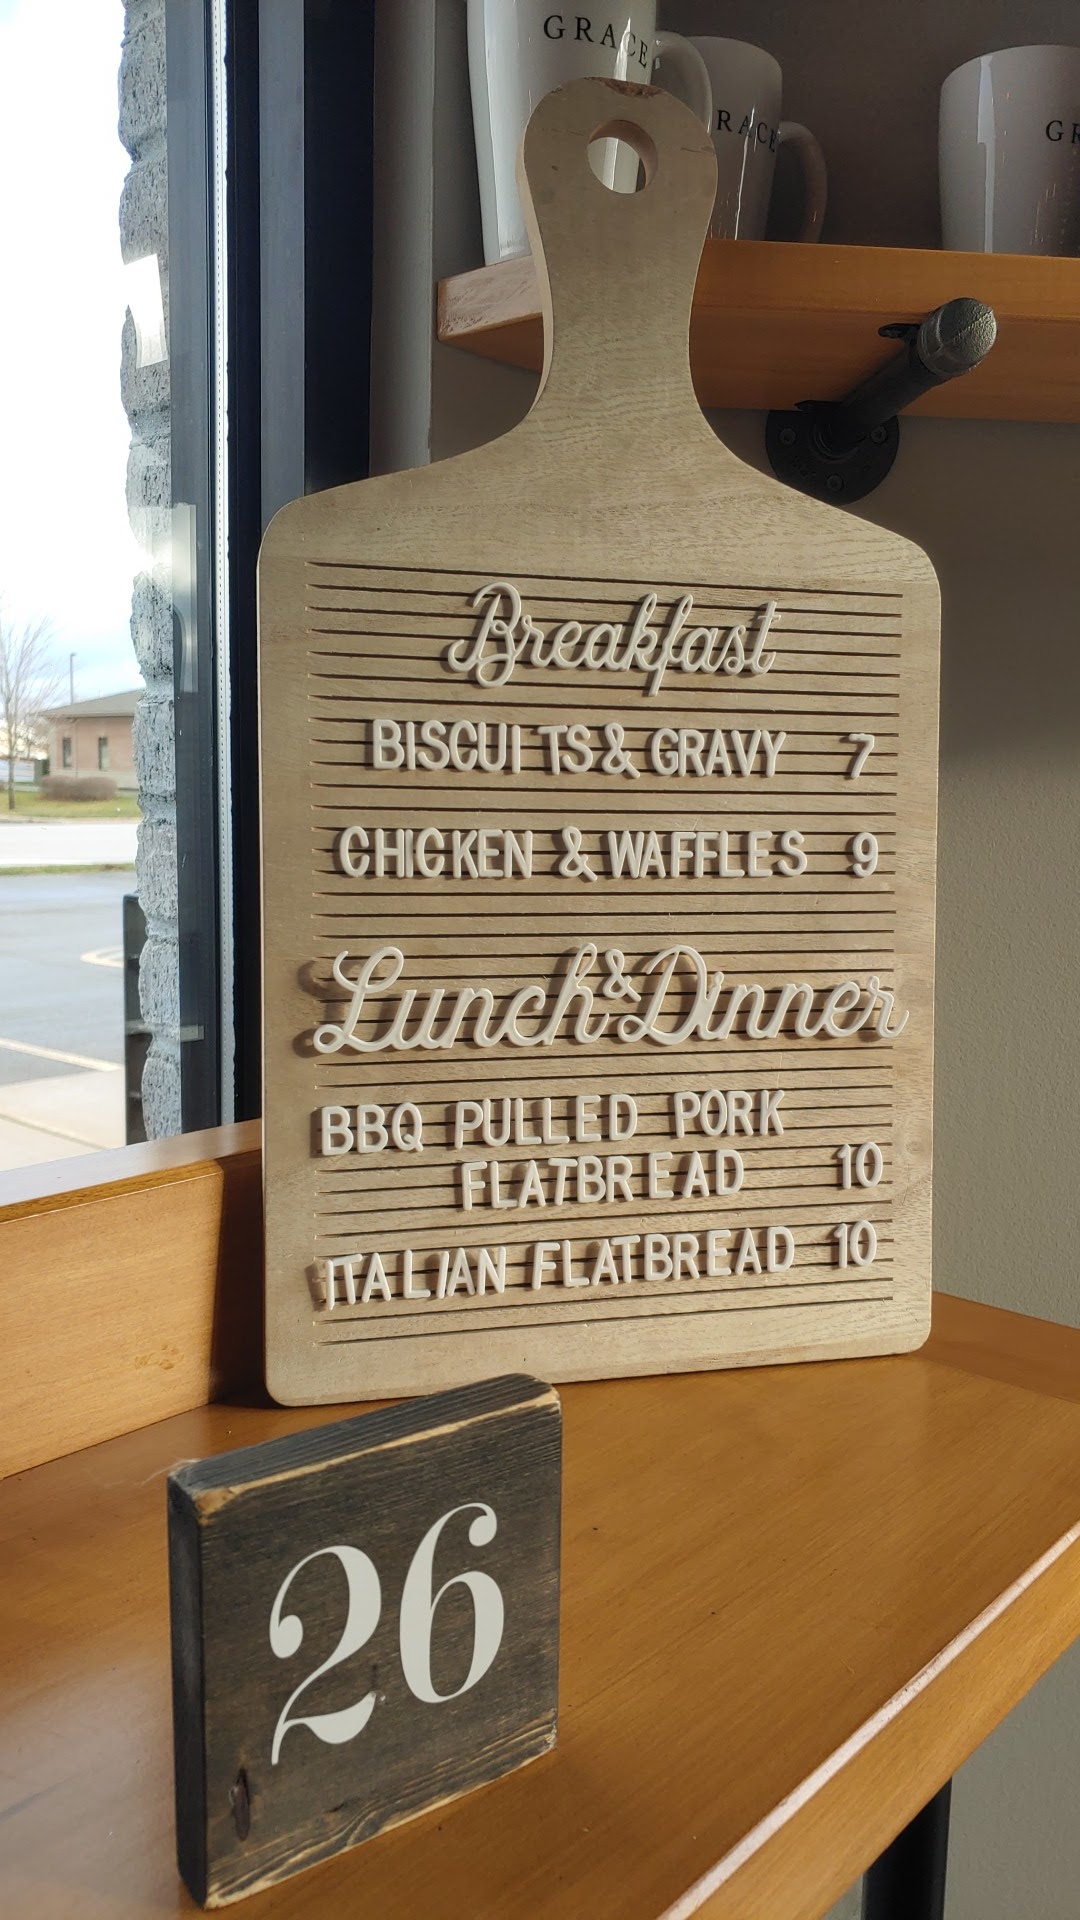 GRACE
GRACE
GR
Breakfast
BISCUITS & GRAVY 7
CHICKEN & WAFFLES 9
Lunch & Dinner
BBQ PULLED PORK
FLATBREAD 10
ITALIAN FLATBREAD 10
26